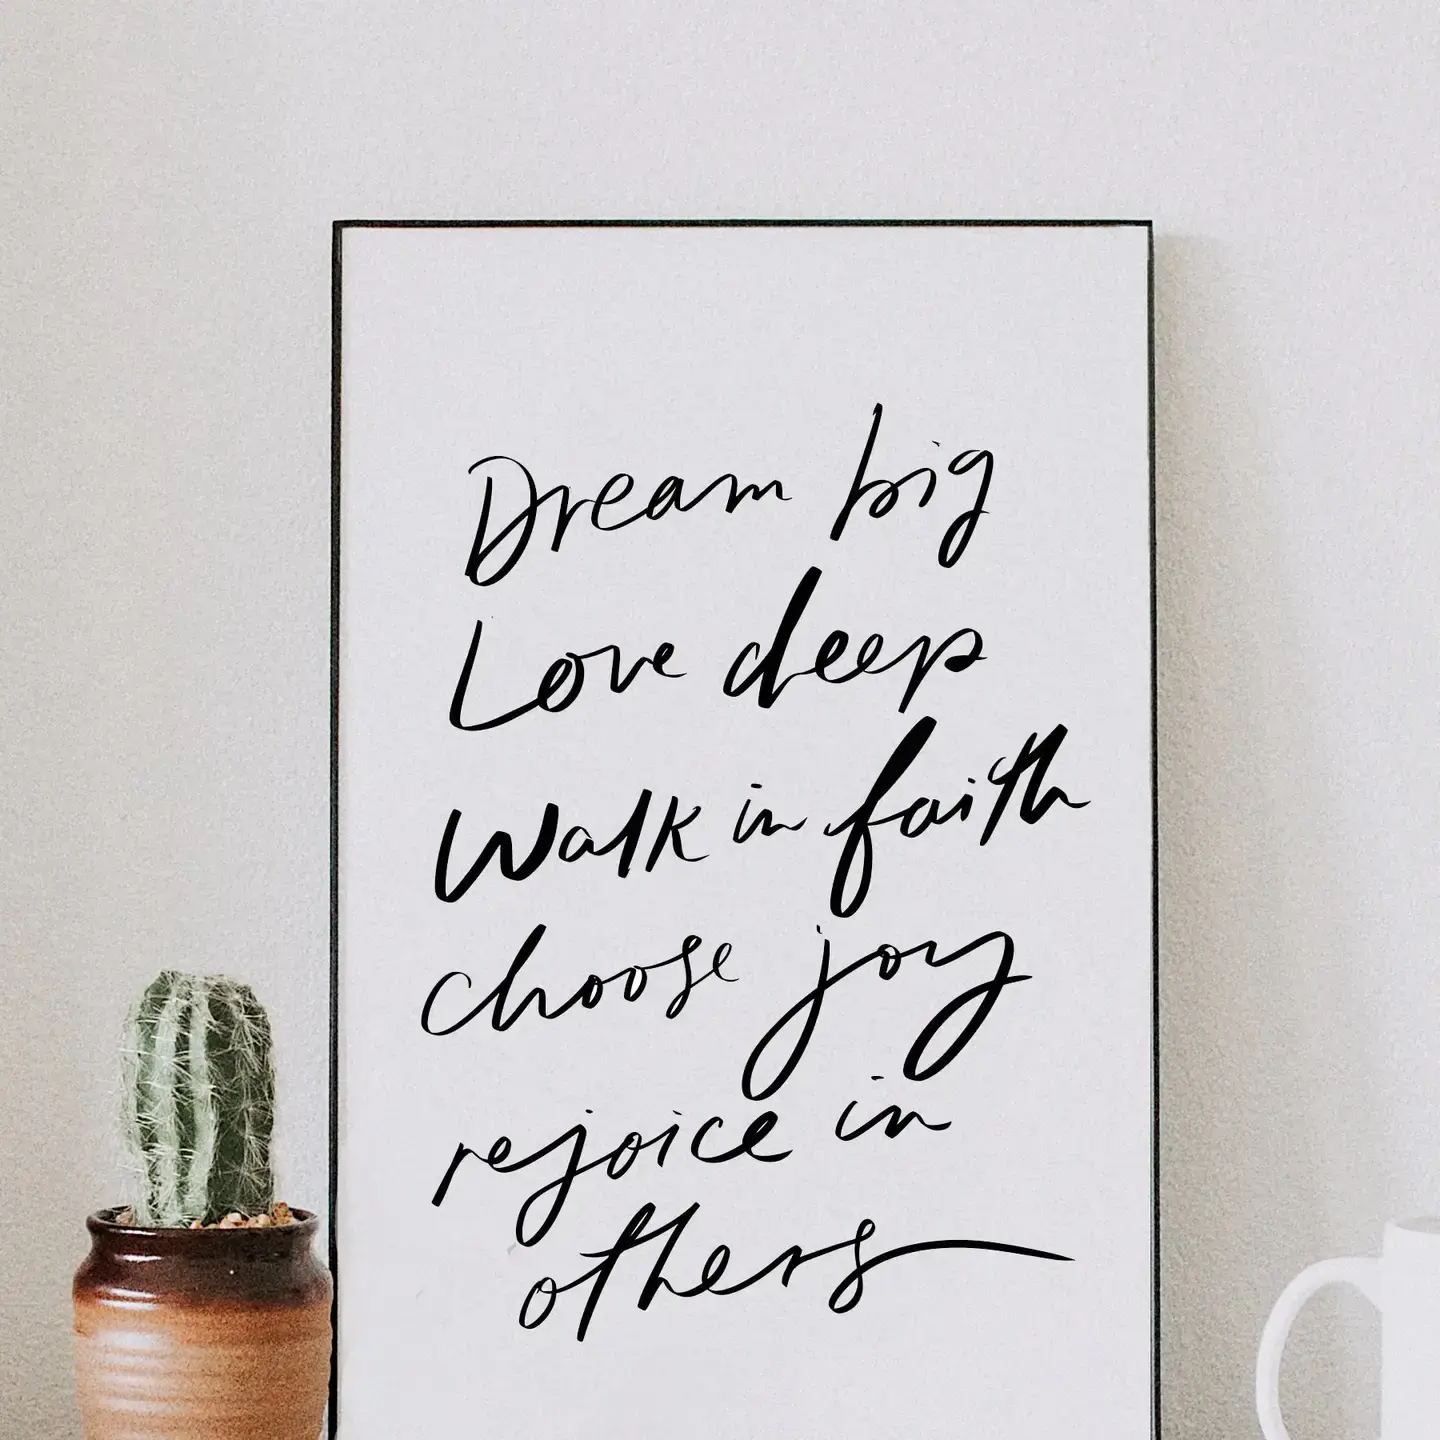 Dream big
Love deep
Walk in faith
choose joy
rejoice in
others